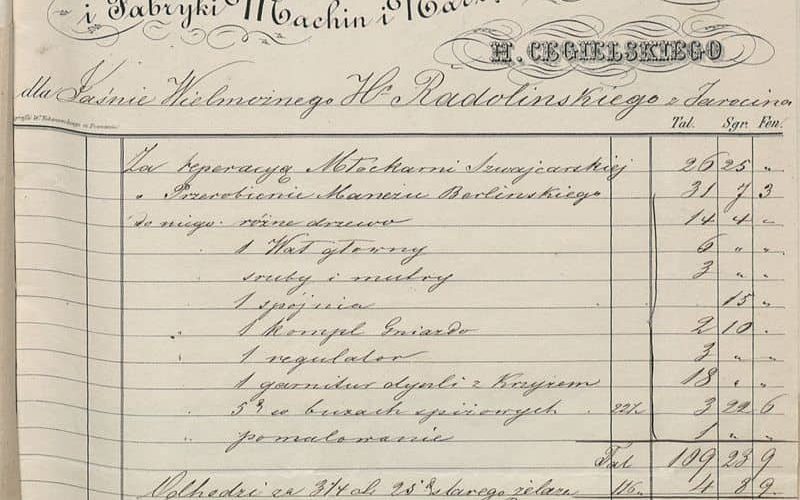 i Fabryki Machin i Narz
H. CEGIELSKIEGO
dla Jaśnie Wielmożnego Hr Radolinskiego z Jarocina
Tal. Sgr. Fen.
Za reperacyą Młockarni Szwajcarskiej 26 25 "
" Przerobienie Maneżu Berlinskiego 31 7 3
do niego różne drzewo 14 4 "
1 Wał głowny 6 " "
sruby i mutry 3 " "
1 spójnia 15 "
1 kompl Gniazdo 2 10 "
1 regulator 3 " "
1 garnitur dyszli z Krzyżem 18 " "
w buxach spiżowych 22½ 3 22 6
pomalowanie 1 " "
Tal 109 23 9
Odchodzi za 3/4 starego żelaza 4 8 9